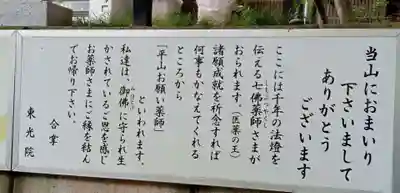 当山におまいり
下さいまして
ありがとう
ございます
ここには千年の法燈を
伝える七佛薬師さまが
おられます。(医薬の王)
諸願成就を祈念すれば
何事もかなえてくれる
ところから
「平山お願い薬師」
といわれます。
私達は、御佛に守られ生
かされているご恩を感じ
お薬師さまにご縁を結ん
でお帰り下さい。
合掌
東光院